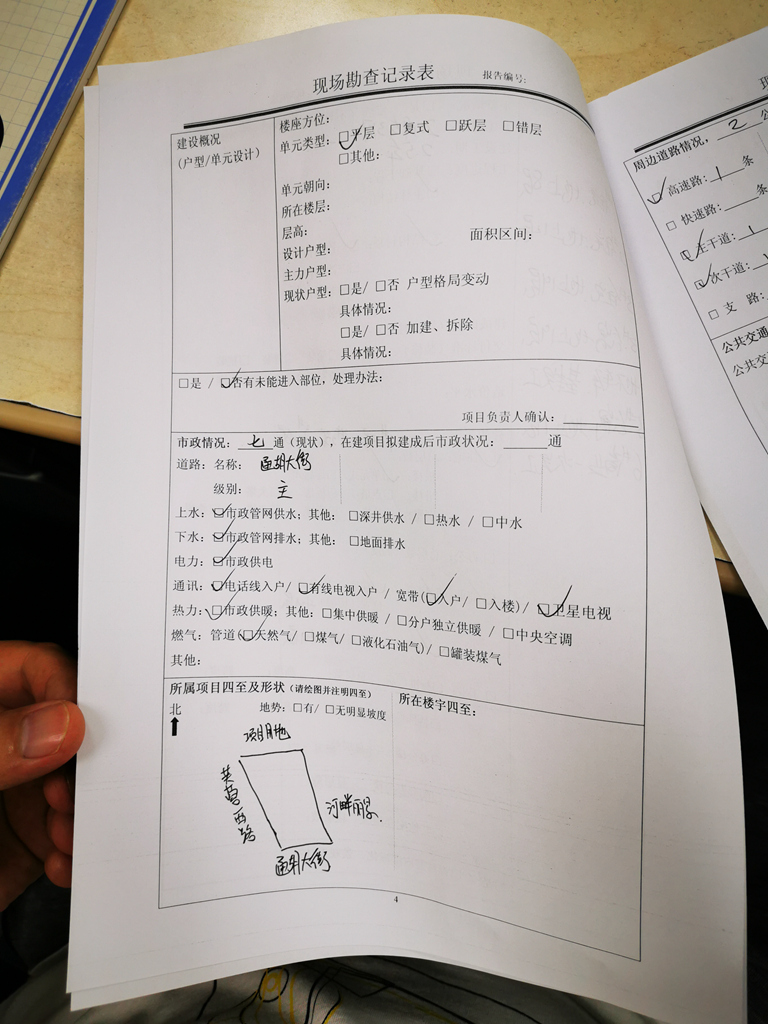 现场勘查记录表
报告编号:
建设概况
(户型/单元设计)
楼座方位:
单元类型: ☑平层 □复式 □跃层 □错层
□其他:
单元朝向:
所在楼层:
层高:
面积区间:
设计户型:
主力户型:
现状户型: □是/ □否 户型格局变动
具体情况:
□是/ □否 加建、拆除
具体情况:
□是 / ☑否有未能进入部位, 处理办法:
项目负责人确认:
市政情况: 七 通（现状），在建项目拟建成后市政状况: 通
道路: 名称: 通胡大街
级别: 主
上水: ☑市政管网供水; 其他: □深井供水 / □热水 / □中水
下水: ☑市政管网排水; 其他: □地面排水
电力: ☑市政供电
通讯: ☑电话线入户/ ☑有线电视入户 / 宽带(☑入户/ □入楼)/ ☑卫星电视
热力: ☑市政供暖; 其他: □集中供暖 / □分户独立供暖 / □中央空调
燃气: 管道(☑天然气/ □煤气/ □液化石油气)/ □罐装煤气
其他:
所属项目四至及形状（请绘图并注明四至）
北
地势: □有/ □无明显坡度
项目用地
芙蓉西路
河畔丽景
通胡大街
所在楼宇四至:
4
周边道路情况, 2 公
☑高速路: 1 条
□快速路: 条
☑主干道: 1
☑次干道: 1
□支 路:
公共交通
公共交